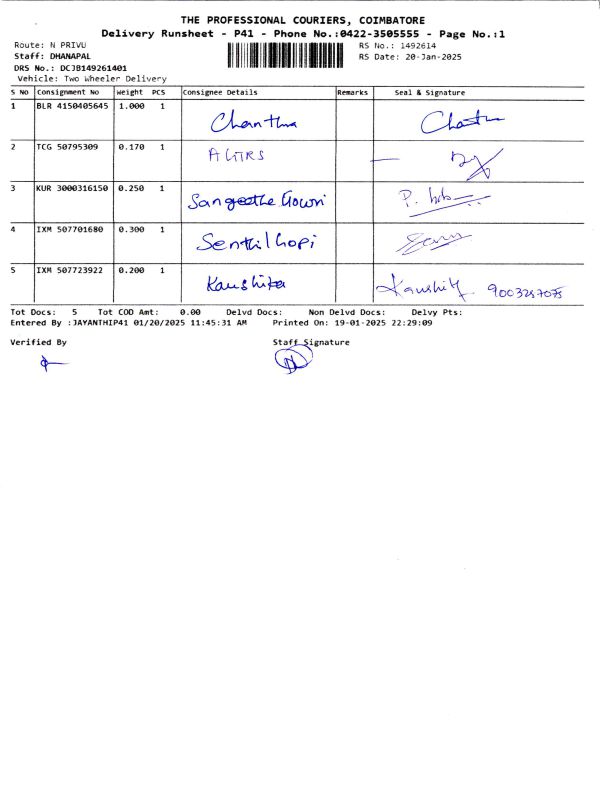 THE PROFESSIONAL COURIERS, COIMBATORE
Delivery Runsheet - P41 - Phone No.:0422-3505555 - Page No.:1
Route: N PRIVU RS No.: 1492614
Staff: DHANAPAL RS Date: 20-Jan-2025
DRS No.: DCJB149261401
Vehicle: Two Wheeler Delivery
S No Consignment No Weight PCS Consignee Details Remarks Seal & Signature
1 BLR 4150405645 1.000 1
2 TCG 50795309 0.170 1
3 KUR 3000316150 0.250 1 Sangeetha Gowri
4 IXM 507701680 0.300 1 Senthil Gopi
5 IXM 507723922 0.200 1 Kaushika
Tot Docs: 5 Tot COD Amt: 0.00 Delvd Docs: Non Delvd Docs: Delvy Pts:
Entered By :JAYANTHIP41 01/20/2025 11:45:31 AM Printed On: 19-01-2025 22:29:09
Verified By Staff Signature